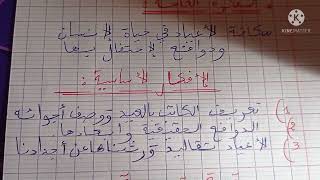 الفكرة العامة:
مكانة الأعياد في حياة الإنسان
ودوافع الاحتفال بها
الأفكار الأساسية:
1) تعريف الكاتب بالعيد ووصف أجوائه
2) الدوافع الحقيقية وأبعادها
3) الأعياد تقاليد ورثناها عن أجدادنا
KINEMASTER